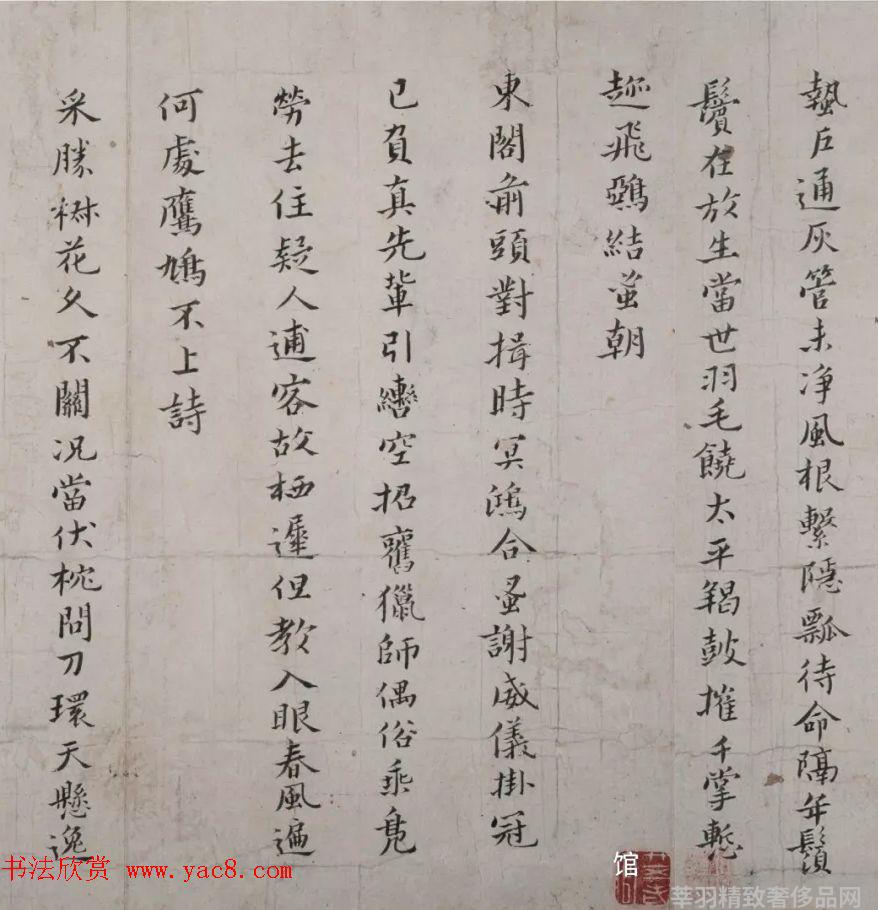 蟄戶通灰管未净風根繫隱瓢待命隔年鬚
鬢在放生當世羽毛饒太平羯鼓摧千掌慙
趂飛鵶結蚤朝
東閣前頭對揖時冥鴻合蚤謝威儀掛冠
已負真先輩引轡空招舊獵師偶俗乘鳧
勞去住疑人逋客故栖遲但教入眼春風遍
何處鷹鳩不上詩
采勝樹花久不關况當伏枕問刀環天懸逸
馆
书法欣赏 www.yac8.com
莘羽精致奢侈品网